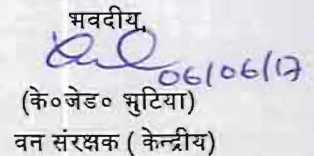 भवदीय,
06/06/17
(के०जेड० भुटिया)
वन संरक्षक ( केन्द्रीय)